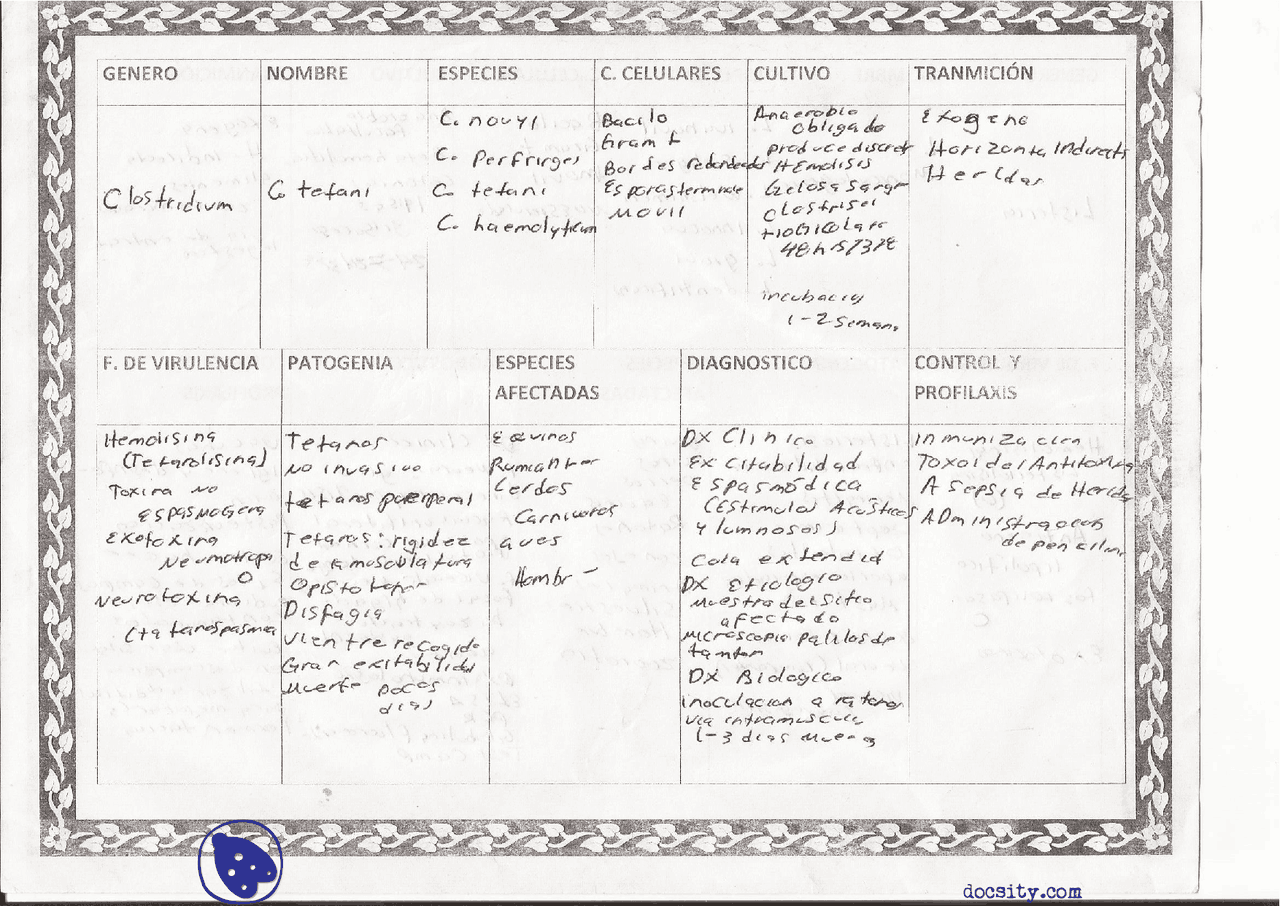 GENERO
NOMBRE
ESPECIES
C. CELULARES
CULTIVO
TRANMICIÓN
Clostridium
C. tetani
C. novyi
C. perfringes
C. tetani
C. haemolyticum
Bacilo
Gram +
Bordes redondeados
Esporas terminale
Movil
Anaerobio
obligado
produce discret
HEmolisis
Gelosa sangr
clostrisel
48h 15/37°C
incubacion
1-2 Semana
Exogeno
Horizonta indirecta
Heridas
F. DE VIRULENCIA
PATOGENIA
ESPECIES
AFECTADAS
DIAGNOSTICO
CONTROL Y
PROFILAXIS
Hemolisina
(Tetanolisina)
Toxina no
espasmogena
Exotoxina
Neumotropa
O
Neurotoxina
(tetanospasmea
Tetanos
no invasivo
tetanos puerperal
Tetanos: rigidez
de la musculatura
Opistotono
Disfagia
Vientre recogido
Gran exitabilidad
Muerte pocos
dias
Equinos
Rumiantes
Cerdos
Carnivoros
aves
Hombre
DX Clinico
Excitabilidad
Espasmódica
(Estimulos Acústicos
y lumnosos)
Cola extendid
DX Etiologio
Muestra del Sitio
afectado
Microscopia palillos de
tambor
DX Biologico
inoculacion a ratones
via intramuscula
1-3 dias mueren
Inmunizacion
Toxoide Antitoxina
Asepsia de Herida
ADministracion
de penicilina
docsity.com